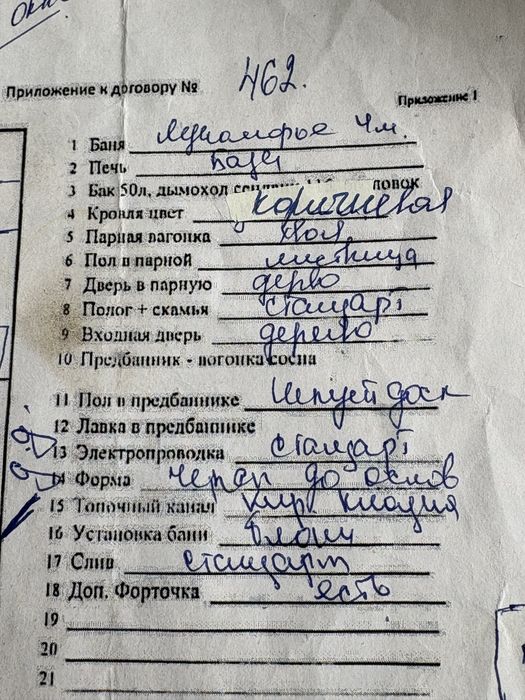 Приложение к договору № 462.
Приложение 1
1 Баня 4м.
2 Печь
3 Бак 50л, дымоход
4 Кровля цвет коричневая
5 Парная вагонка
6 Пол в парной лиственица
7 Дверь в парную дерево
8 Полог + скамья стандарт
9 Входная дверь дерево
10 Предбанник - вогонка сосна
11 Пол в предбаннике Шпунт доск
12 Лавка в предбаннике
13 Электропроводка стандарт
14 Форма до основ
15 Топочный канал кирп кладка
16 Установка бани блоки
17 Слив стандарт
18 Доп. Форточка есть
19
20
21